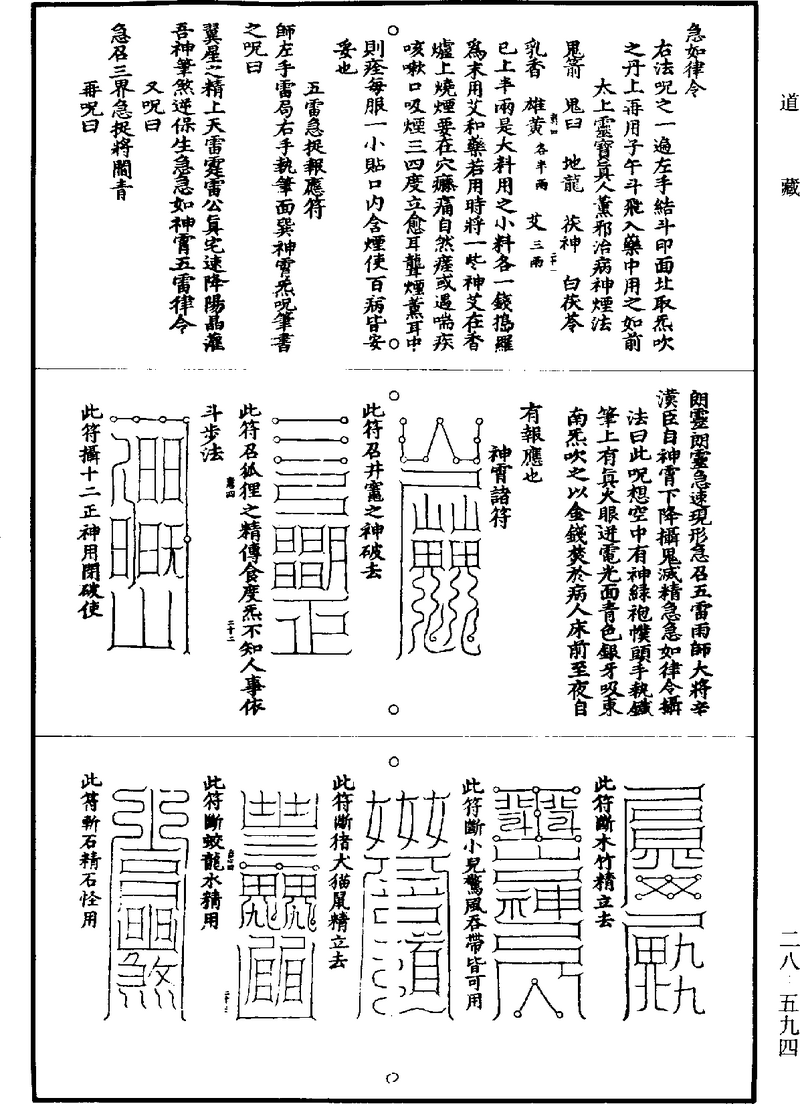 道藏
二八·五九四
急如律令
右法呪之一遍左手結斗印面北取炁吹
之丹上再用子午斗飛入藥中用之如前
太上靈寶眞人薰邪治病神煙法
鬼箭 鬼臼 地龍 茯神 白茯苓
乳香 雄黃各半兩 艾三兩
已上半兩是大料用之小料各一錢搗羅
爲末用艾和藥若用時將一些神艾在香
爐上燒煙要在穴癢痛自然瘥或遇喘疾
咳嗽口吸煙三四度立愈耳聾煙薰耳中
則痊每服一小貼口內含煙使百病皆安
妥也
五雷急捉報應符
師左手雷局右手執筆面巽神霄炁呪筆書
之呪曰
翼星之精上天雷霆雷公眞宅速降陽晶灌
吾神筆煞逆保生急急如神霄五雷律令
又呪曰
急召三界急捉將閻青
再呪曰
朗靈朗靈急速現形急召五雷雨師大將辛
漢臣自神霄下降攝鬼滅精急急如律令攝
法曰此呪想空中有神綠袍幞頭手執鐵
筆上有眞火眼迸電光面青色銀牙吸東
南炁吹之以金錢焚於病人床前至夜自
有報應也
神霄諸符
此符召井竈之神破去
此符召狐狸之精傳食度炁不知人事依
斗步法
此符攝十二正神用閉破使
此符斷木竹精立去
此符斷小兒驚風吞帶皆可用
此符斷猪犬猫鼠精立去
此符斷蛟龍水精用
此符斬石精石怪用